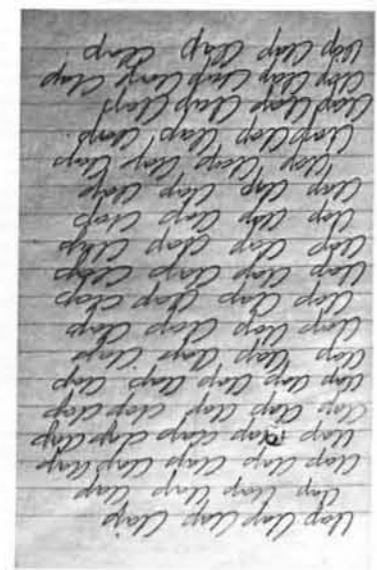 Clap Clap Clap Clap
Clap Clap Clap Clap
Clap Clap Clap Clap Clap
Clap Clap Clap Clap
Clap Clap Clap Clap Clap
Clap Clap Clap Clap
Clap Clap Clap Clap
Clap Clap Clap Clap
Clap Clap Clap Clap
Clap Clap Clap Clap
Clap Clap Clap Clap
Clap Clap Clap Clap
Clap Clap Clap Clap
Clap Clap Clap Clap
Clap Clap Clap Clap
Clap Clap Clap Clap
Clap Clap Clap Clap Clap
Clap Clap Clap Clap